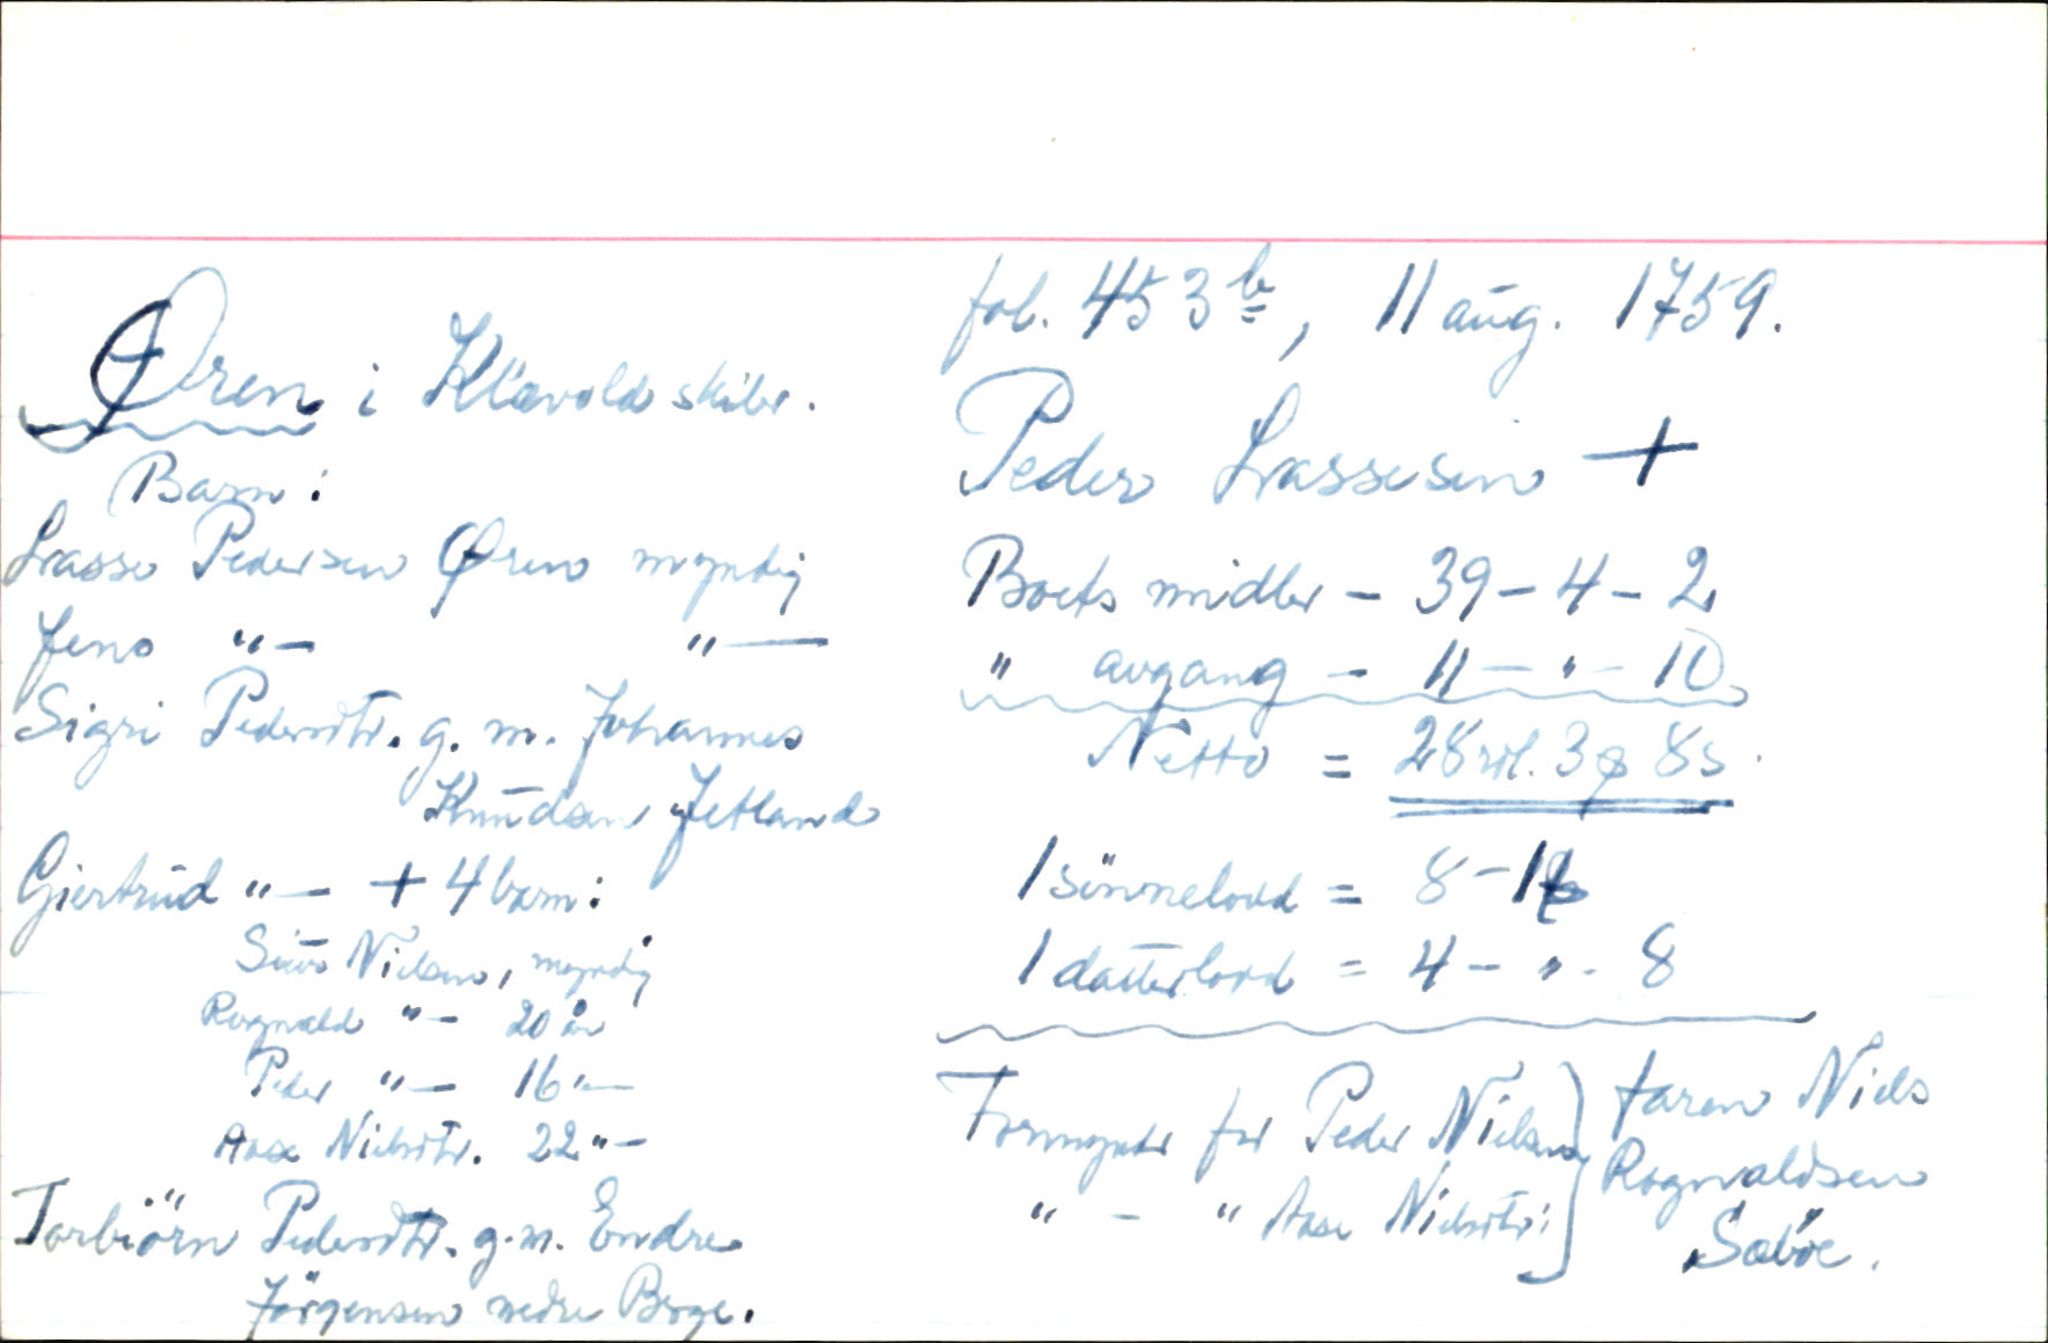 Øren i Klævold skibr.
Barn:
Lasse Pedersen Øren myndig
Jens "— "—
Sigri Pedersdtr. g. m. Johannes
Knudsen Jetland
Giertrud "— + 4 barn:
Siur Nielsen, myndig
Rognald "— 20 år
Peder "— 16 "—
Aase Nielsdtr. 22 "—
Torbiörn Pedersdtr. g. m. Endre
Jörgensen nedre Berge.
fol. 453 b, 11 aug. 1759.
Peder Lassesen +
Boets midler — 39 — 4 — 2
" avgang — 11 — " — 10
Netto = 28 rdl. 3 ꝑ 8 s.
1 sönnelodd = 8 — 1
1 datterlodd = 4 — " — 8
Formynder for Peder Nielsen
" — " Aase Nielsdtr:
faren Niels
Rognaldsen
Saböe.